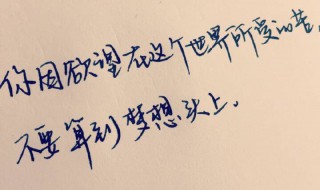 你因欲望在这个世界所受的苦，
不要算到梦想头上。